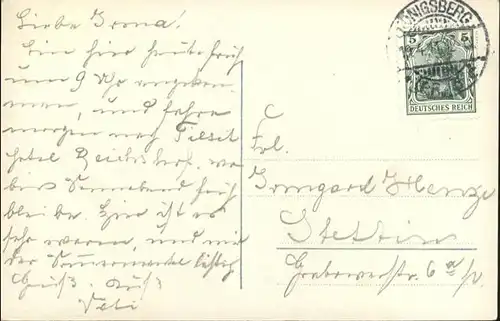 Liebe Irma!
Bin hier heute früh
um 9 Uhr angekom-
men, und fahre
morgen nach Tilsit
Hotel Reichshof, wo
bis Sonnabend früh
bleibe. Hier ist es
sehr warm, und mir
der Sommermantel lästig
Gruß. Kuß
KÖNIGSBERG
5 5
DEUTSCHES REICH
Frl.
Irmgard Henze
Stettin
Grabowerstr. 6a